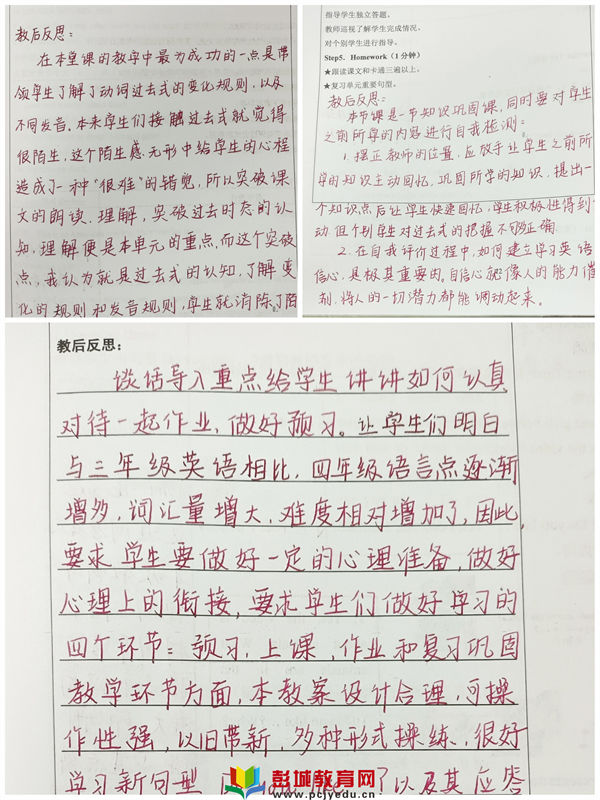 教后反思:
在本堂课的教学中最为成功的一点是带
领学生了解了动词过去式的变化规则,以及
不同发音,本来学生们接触过去式就觉得
很陌生,这个陌生感无形中给学生的心裡
造成了一种“很难”的错觉,所以突破课
文的朗读、理解,突破过去时态的认
知,理解便是本单元的重点,而这个突破
点,我认为就是过去式的认知,了解变
化的规则和发音规则,学生就消除了陌
指导学生独立答题。
教师巡视了解学生完成情况,
对个别学生进行指导。
Step5. Homework(1分钟)
★跟读课文和卡通三遍以上。
★复习单元重要句型。
教后反思:
本节课是一节知识巩固课,同时要对学生
之前所学的内容进行自我检测:
1. 摆正教师的位置,应放手让学生之前所
学的知识主动回忆,巩固所学的知识,提出一
个知识点后让学生快速回忆,学生积极性得到
动但个别学生对过去式的把握不够正确.
2. 在自我评价过程中,如何建立学习英语
信心,是极其重要肉,自信心就像人的能力催
剂,将人的一切潜力都能调动起来。
教后反思:
谈话导入重点给学生讲讲如何认真
对待一起作业,做好预习。让学生们明白
与三年级英语相比,四年级语言点逐渐
增多,词汇量增大,难度相对增加了,因此,
要求学生要做好一定的心理准备,做好
心理上的衔接,要求学生们做好学习的
四个环节:预习,上课,作业和复习巩固
教学环节方面,本教案设计合理,可操
作性强,以旧带新,多种形式操练,很好
学习新句型 了以及其应答
彭城教育网
www.pcjyedu.cn